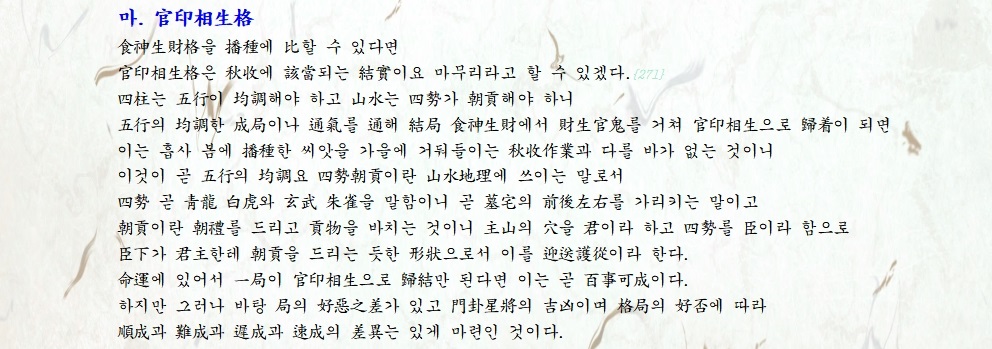 마. 官印相生格
食神生財格을 播種에 比할 수 있다면
官印相生格은 秋收에 該當되는 結實이요 마무리라고 할 수 있겠다.{271}
四柱는 五行이 均調해야 하고 山水는 四勢가 朝貢해야 하니
五行의 均調한 成局이나 通氣를 通해 結局 食神生財에서 財生官鬼를 거쳐 官印相生으로 歸着이 되면
이는 흡사 봄에 播種한 씨앗을 가을에 거둬들이는 秋收作業과 다를 바가 없는 것이니
이것이 곧 五行의 均調요 四勢朝貢이란 山水地理에 쓰이는 말로서
四勢 곧 青龍 白虎와 玄武 朱雀을 말함이니 곧 墓宅의 前後左右를 가리키는 말이고
朝貢이란 朝禮를 드리고 貢物을 바치는 것이니 主山의 穴을 君이라 하고 四勢를 臣이라 함으로
臣下가 君主한테 朝貢을 드리는 듯한 形狀으로서 이를 迎送護從이라 한다.
命運에 있어서 一局이 官印相生으로 歸結만 된다면 이는 곧 百事可成이다.
하지만 그러나 바탕 局의 好惡之差가 있고 門卦星將의 吉凶이며 格局의 好否에 따라
順成과 難成과 遲成과 速成의 差異는 있게 마련인 것이다.